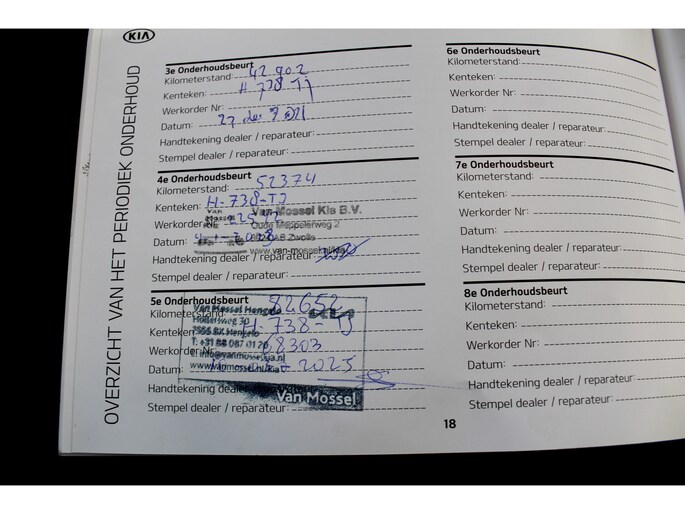 KIA
OVERZICHT VAN HET PERIODIEK ONDERHOUD
3e Onderhoudsbeurt
Kilometerstand: 42.902
Kenteken: H-738-TJ
Werkorder Nr:
Datum: 27 2021
Handtekening dealer / reparateur:
Stempel dealer / reparateur:
4e Onderhoudsbeurt
Kilometerstand: 52374
Kenteken: H-738-TJ
Van Mossel Kia B.V.
Werkorder Nr
Oude Meppelerweg 2
Datum:
Zwolle
www.van-mossel.nl/kia
Handtekening dealer / reparateur:
Stempel dealer / reparateur:
5e Onderhoudsbeurt
Kilometerstand: 82652
Van Mossel Hengelo
KIA
Kenteken: H-738-TJ
Werkorder Nr: 68303
info@vanmossel.nl
Datum: 2025
www.vanmossel.nl/kia
Handtekening dealer / reparateur:
Van Mossel
Stempel dealer / reparateur:
6e Onderhoudsbeurt
Kilometerstand:
Kenteken:
Werkorder Nr:
Datum:
Handtekening dealer / reparateur:
Stempel dealer / reparateur:
7e Onderhoudsbeurt
Kilometerstand:
Kenteken:
Werkorder Nr:
Datum:
Handtekening dealer / reparateur:
Stempel dealer / reparateur:
8e Onderhoudsbeurt
Kilometerstand:
Kenteken:
Werkorder Nr:
Datum:
Handtekening dealer / reparateur:
Stempel dealer / reparateur:
18